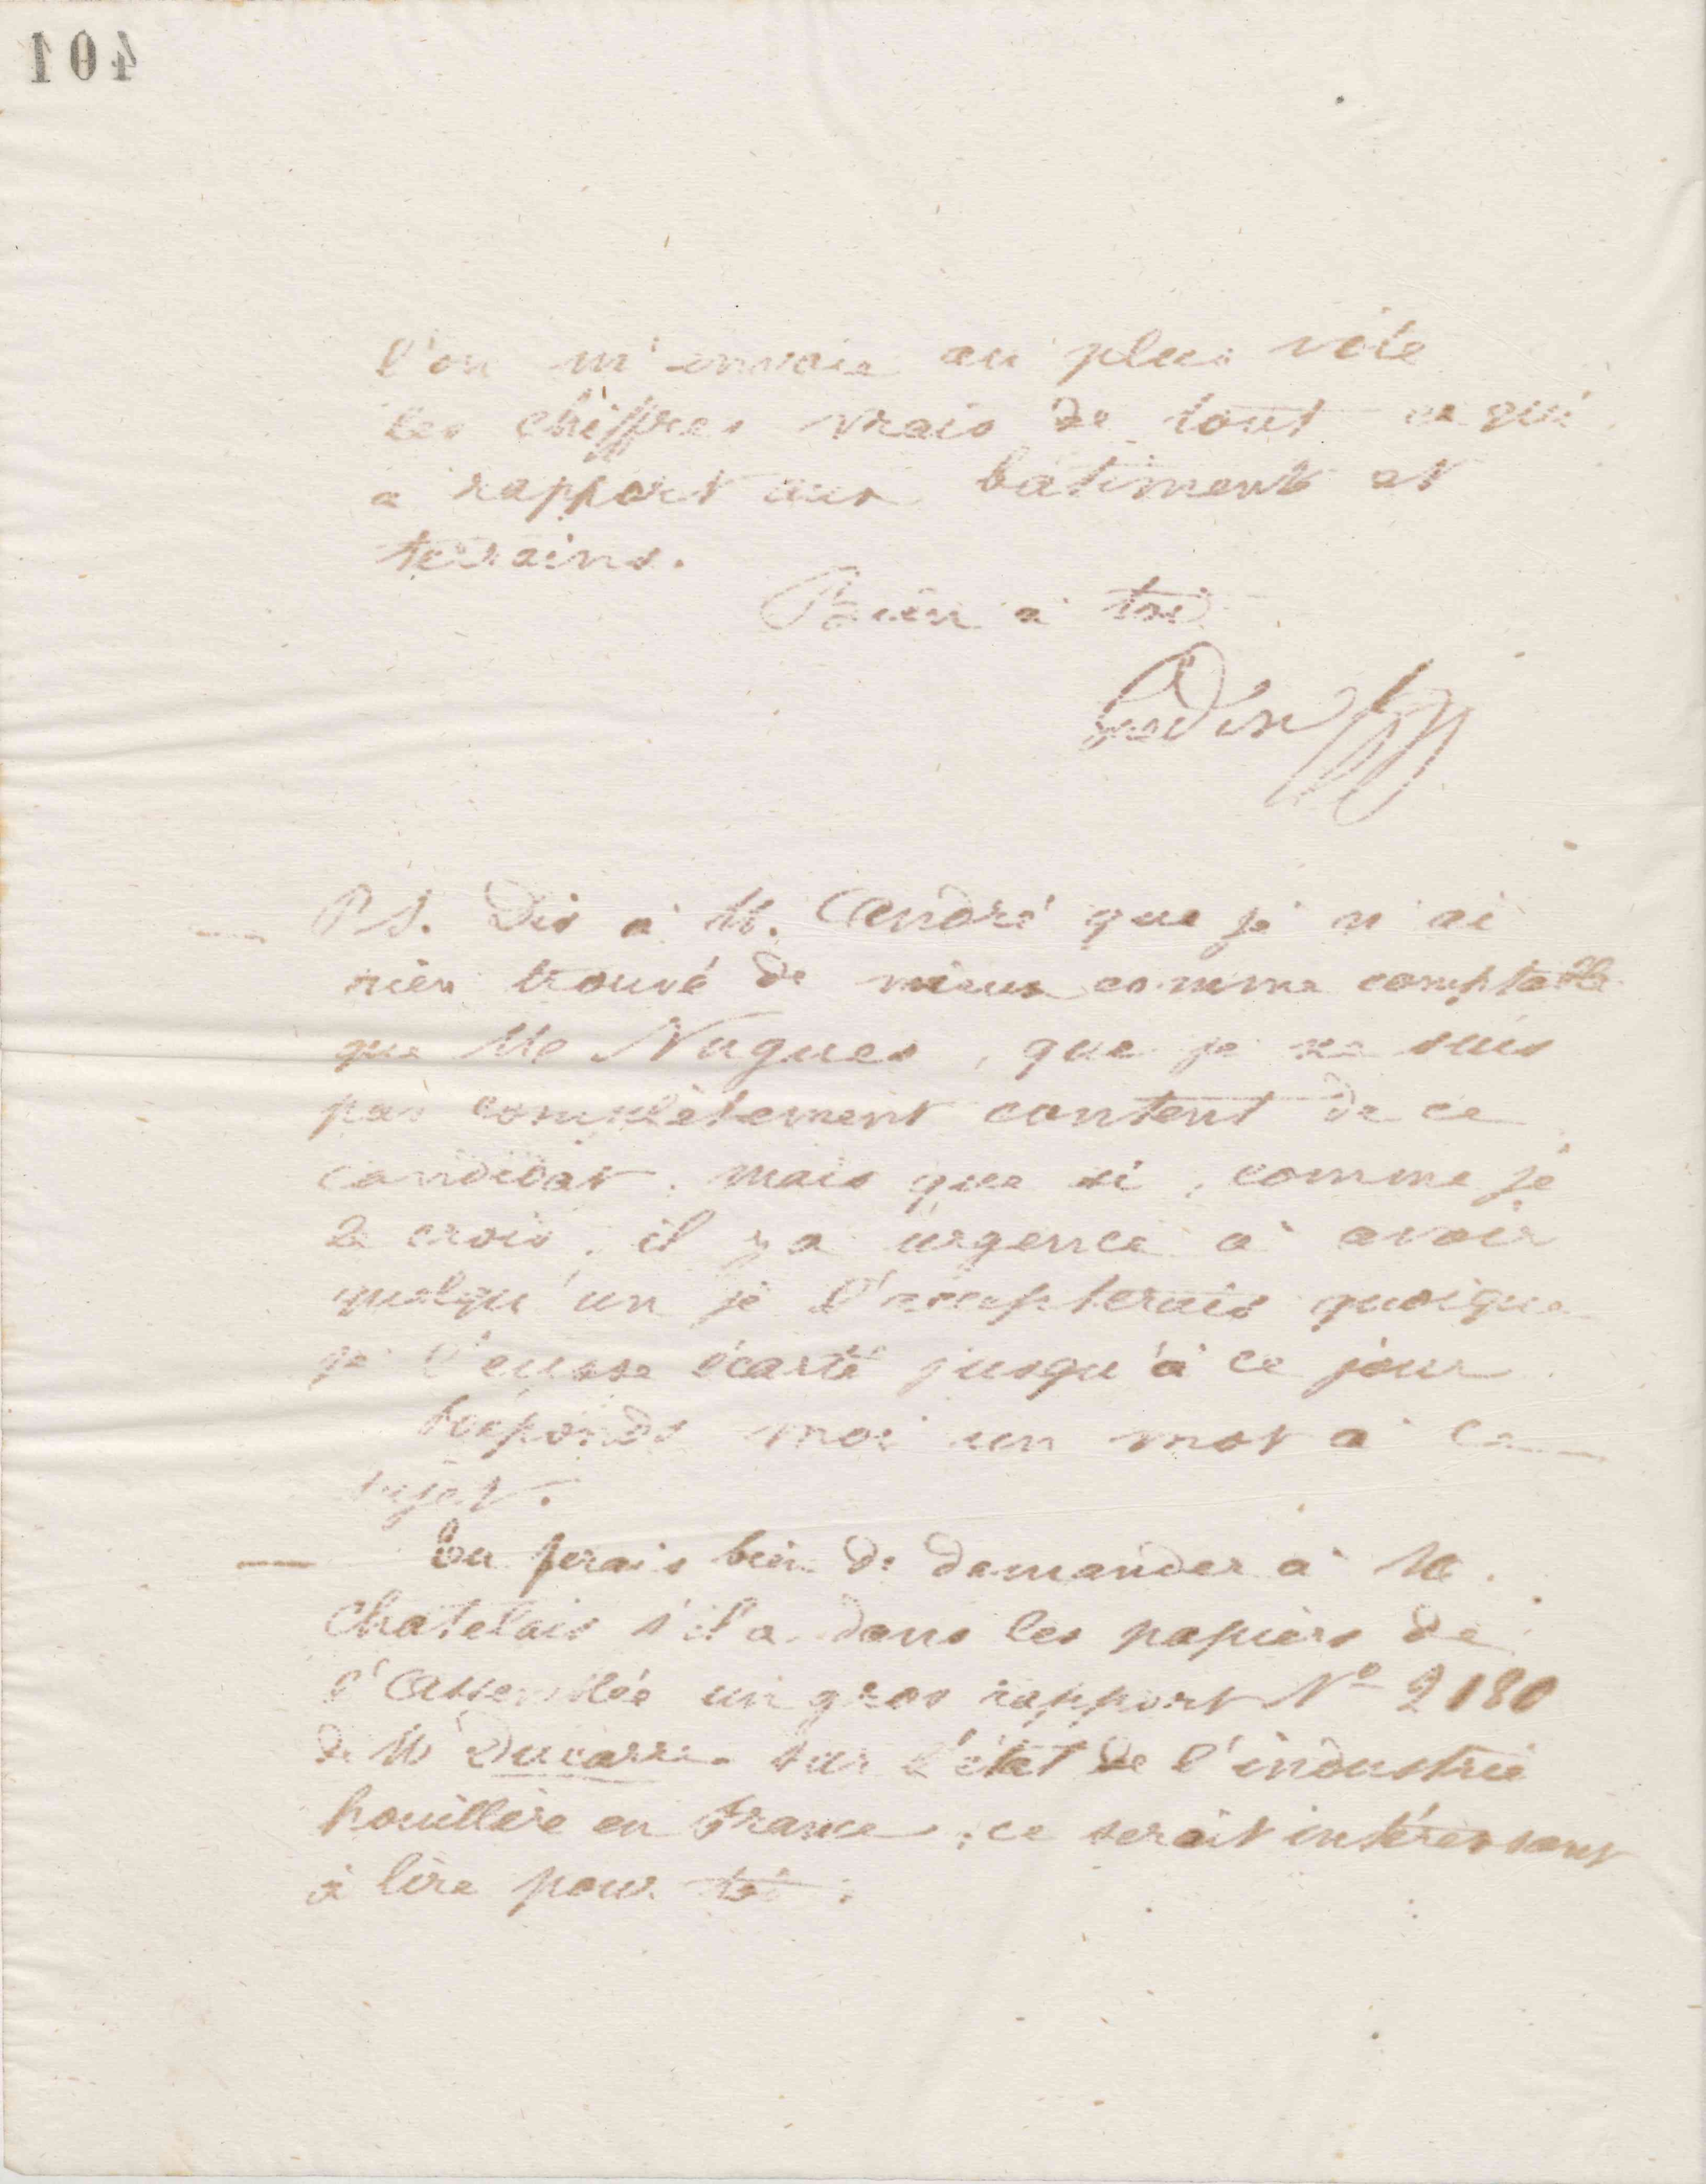 104
l'on m'envoie au plus vite
les chiffres vrais de tout ce qui
a rapport aux batiments et
terrains.
Bien à toi
Godin
— P.S. Dis à M. André que je n'ai
rien trouvé de mieux comme comptable
que Mr Nugues, que je ne suis
pas complètement content de ce
candidat. mais que si, comme je
le crois, il y a urgence à avoir
quelqu'un je l'accepterais quoique
je l'eusse écarté jusqu'à ce jour
Réponds moi un mot à ce
sujet.
— Tu ferais bien de demander à M.
Chatelais s'il a dans les papiers de
l'Assemblée un gros rapport No 2180
de Mr Ducarre sur l'état de l'industrie
houillère en France, ce serait intéressant
à lire pour toi.